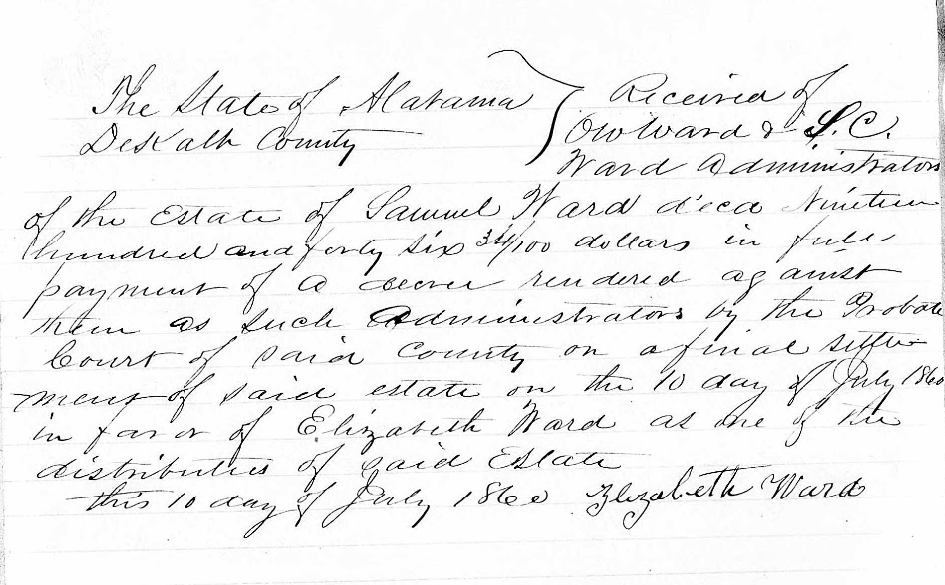 The State of Alabama } Received of
DeKalb County OW Ward & S.C.
Ward Administrators
of the Estate of Samuel Ward d'ecd Nineteen
hundred and forty six 34/100 dollars in full
payment of a decree rendered against
them as such Administrators by the Probate
Court of said County on a final settle
ment of said estate on the 10 day of July 1860
in favor of Elizabeth Ward as one of the
distributies of said Estate
this 10 day of July 1860 Elizabeth Ward